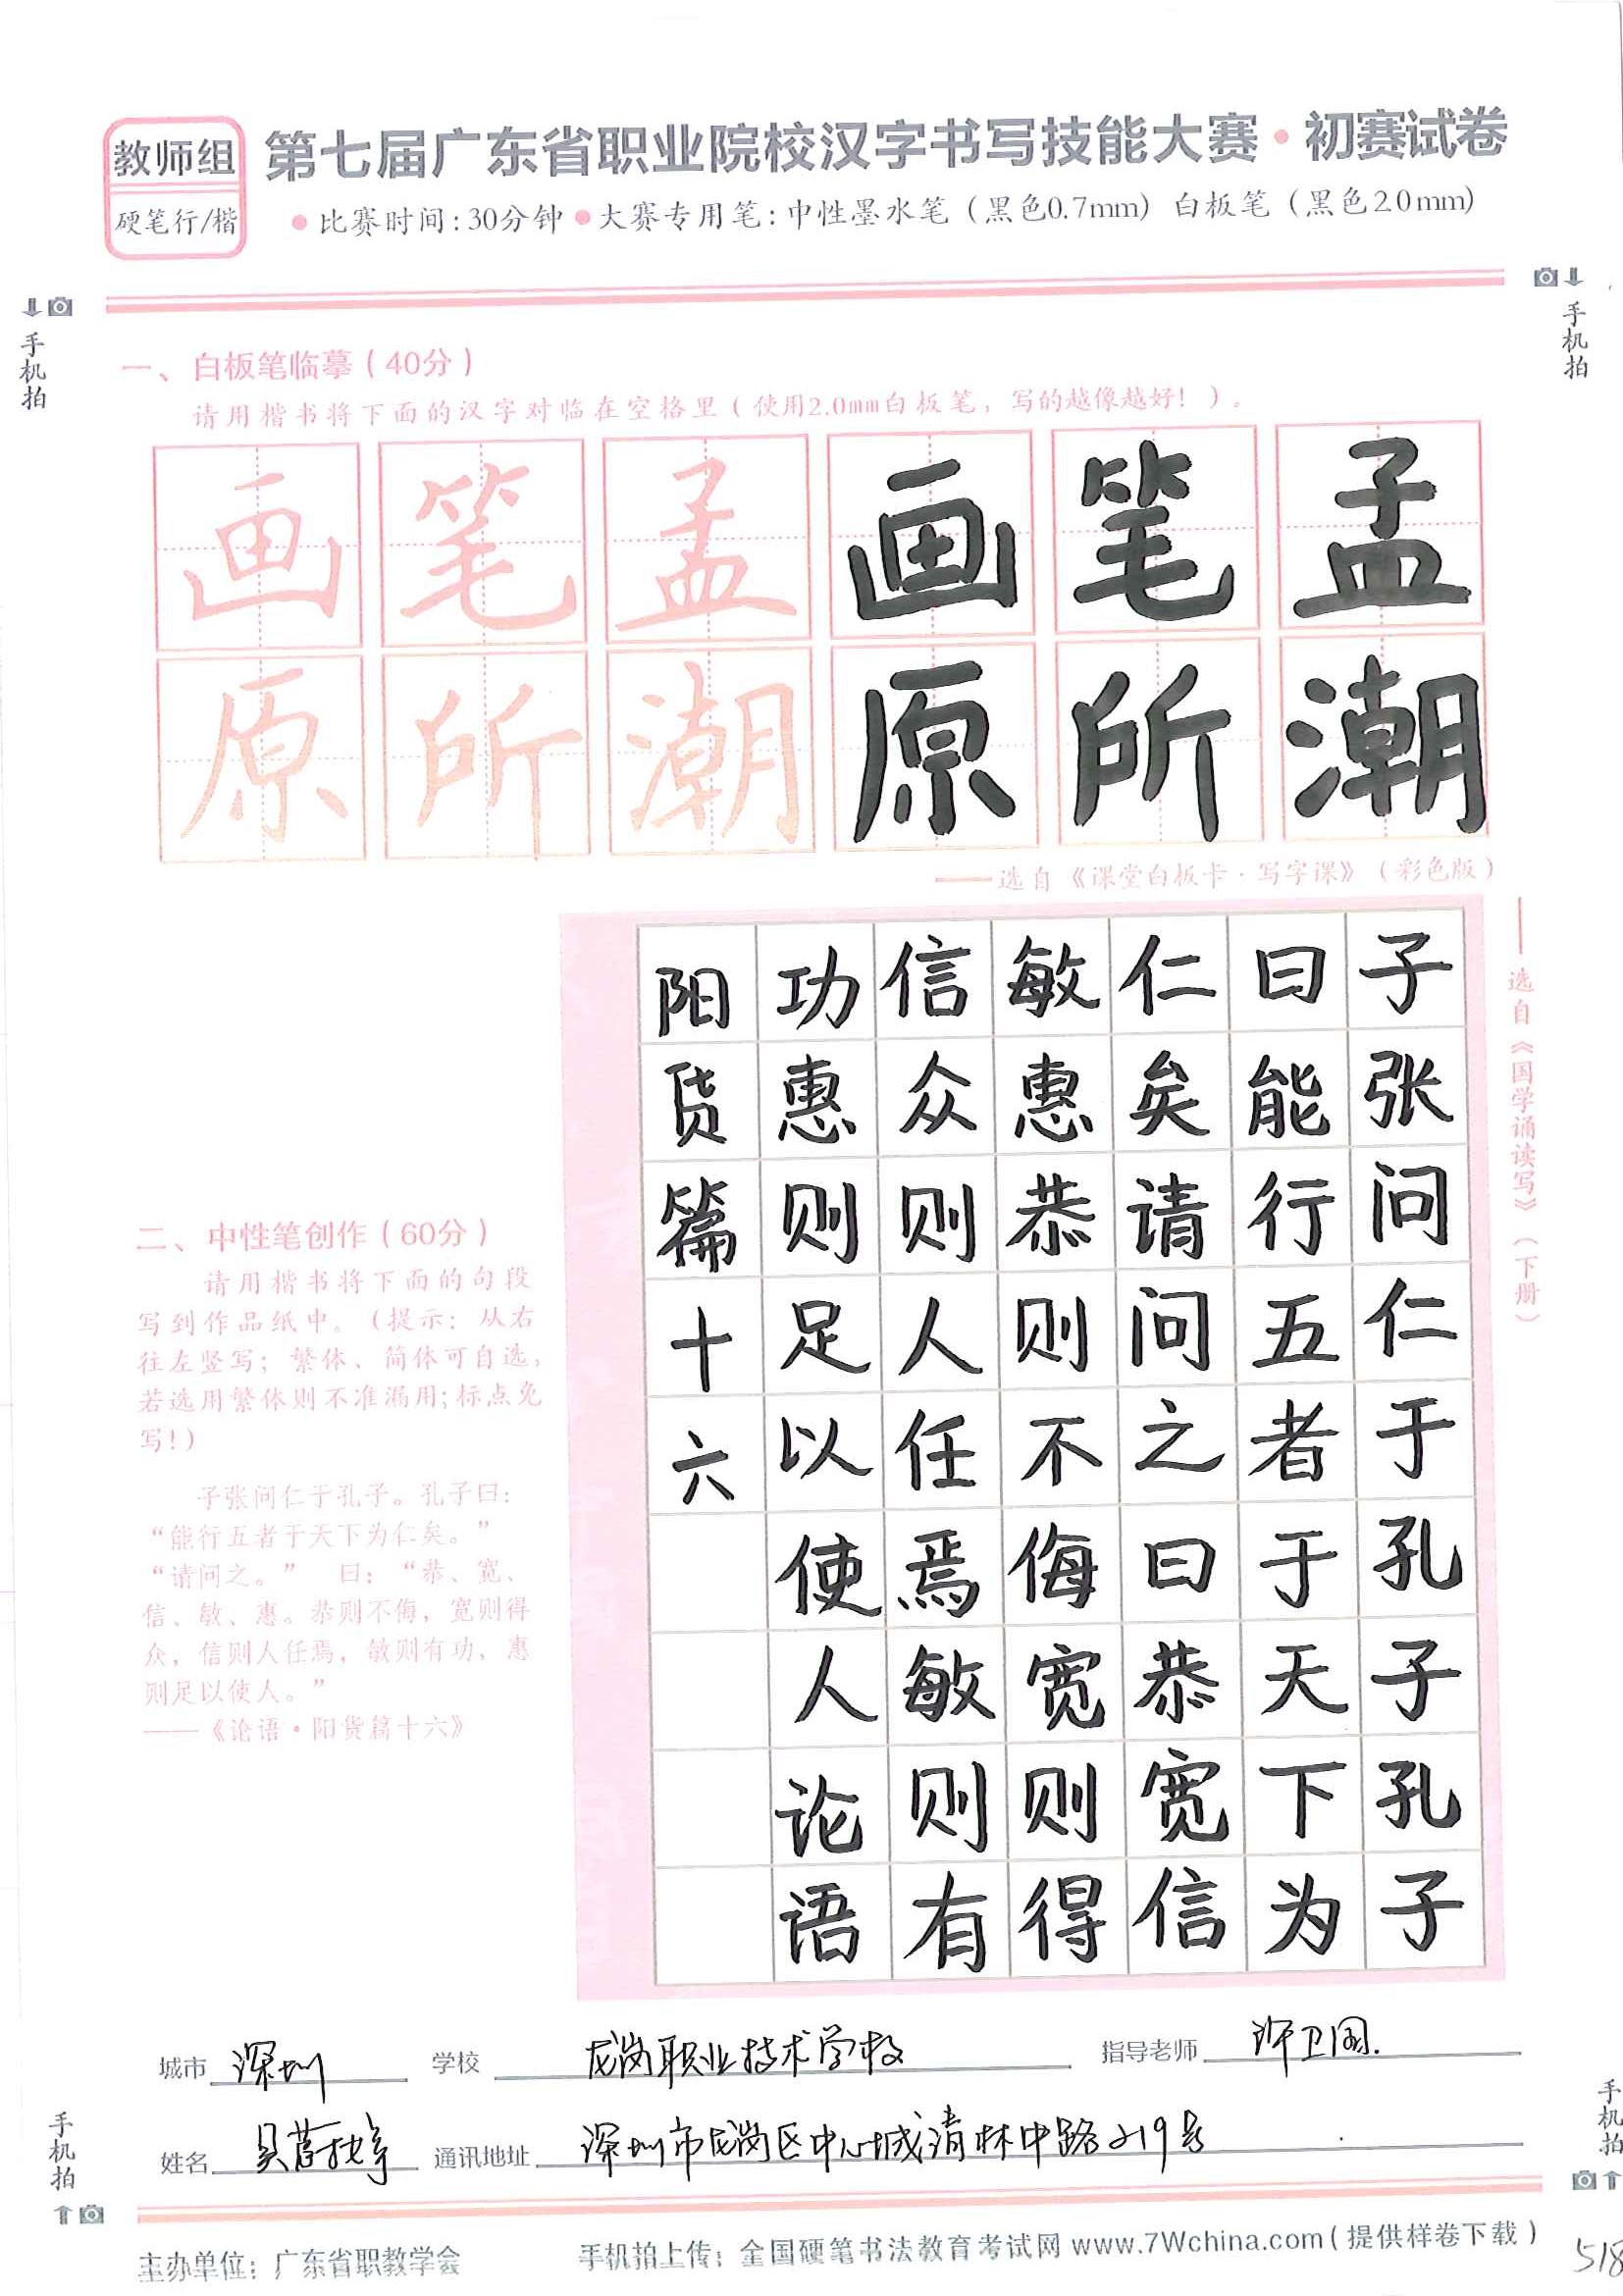 教师组
硬笔行/楷
第七届广东省职业院校汉字书写技能大赛·初赛试卷
●比赛时间:30分钟●大赛专用笔:中性墨水笔(黑色0.7mm)白板笔(黑色2.0mm)
手机拍
手机拍
一、白板笔临摹(40分)
请用楷书将下面的汉字对临在空格里(使用2.0mm白板笔,写的越像越好!)。
画笔孟画笔孟
原所潮原所潮
——选自《课堂白板卡·写字课》(彩色版)
——选自《国学诵读写》(下册)
子张问仁于孔子孔子
曰能行五者于天下为
仁矣请问之曰恭宽信
敏惠恭则不侮宽则得
信众则人任焉敏则有
功惠则足以使人论语
阳货篇十六
二、中性笔创作(60分)
请用楷书将下面的句段
写到作品纸中。(提示:从右
往左竖写;繁体、简体可自选,
若选用繁体则不准漏用;标点免
写!)
子张问仁于孔子。孔子曰:
“能行五者于天下为仁矣。”
“请问之。” 曰:“恭、宽、
信、敏、惠。恭则不侮,宽则得
众,信则人任焉,敏则有功,惠
则足以使人。”
——《论语·阳货篇十六》
城市 深圳 学校 龙岗职业技术学校 指导老师 许卫国.
姓名 通讯地址 深圳市龙岗区中心城清林中路219号
手机拍
手机拍
主办单位:广东省职教学会
手机拍上传:全国硬笔书法教育考试网 www.7Wchina.com(提供样卷下载)
518